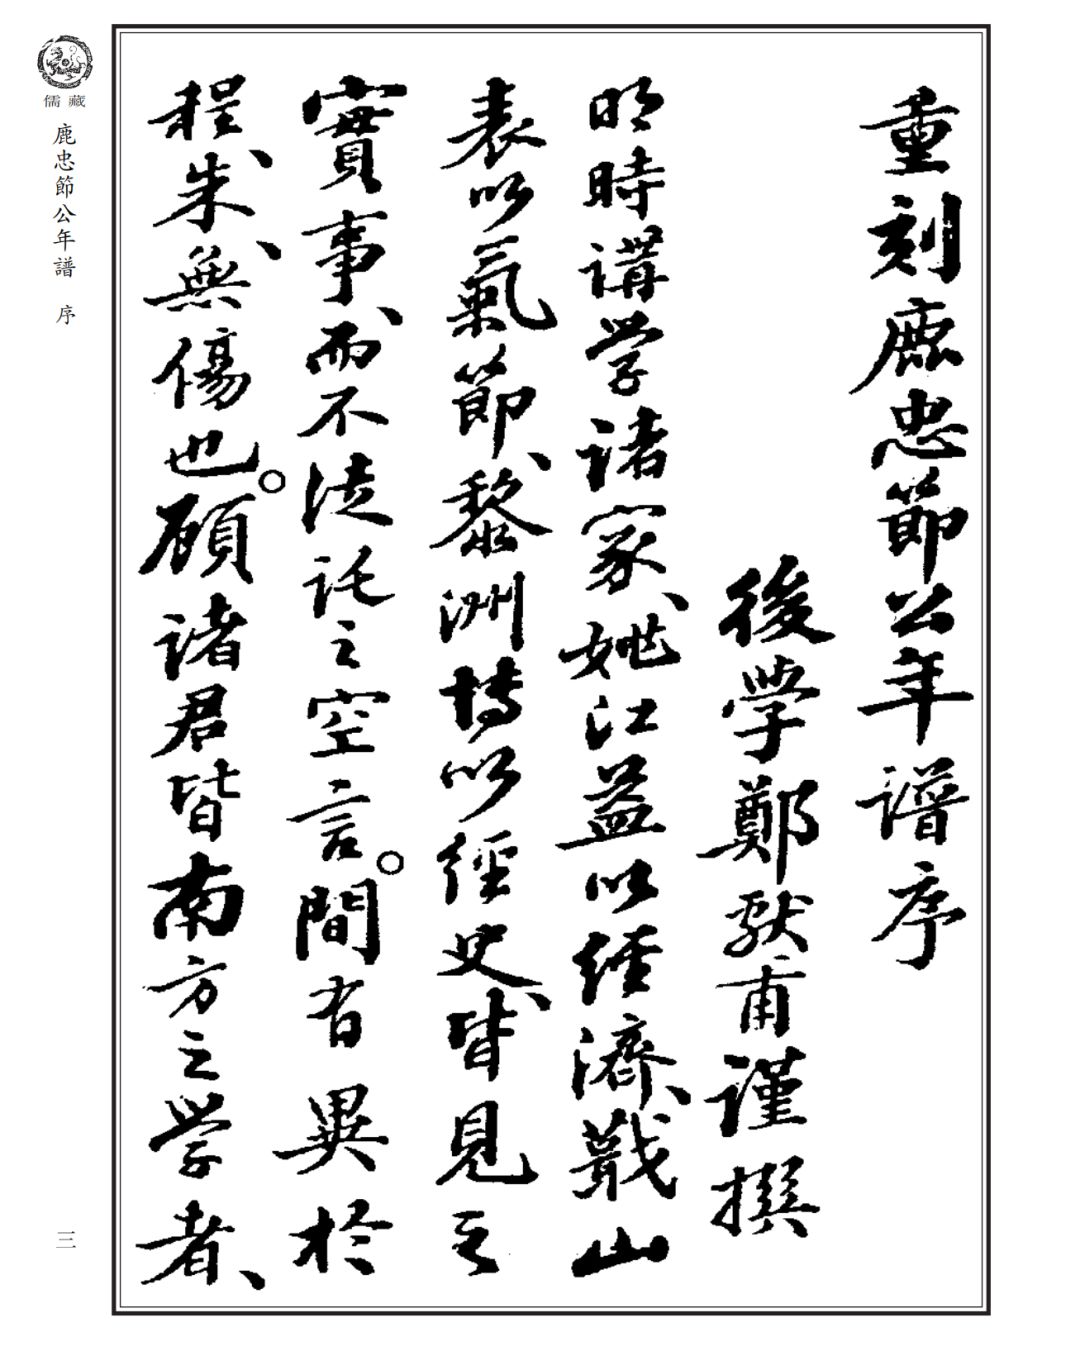 重刻鹿忠節公年譜序
後學鄭獻甫謹撰
明時講学諸家、姚江益以經濟、蕺山
表以氣節、黎洲博以經史、皆見之
實事、而不徒託之空言。間有異於
程、朱、無傷也。顧諸君皆南方之學者、
儒藏
鹿忠節公年譜 序
三